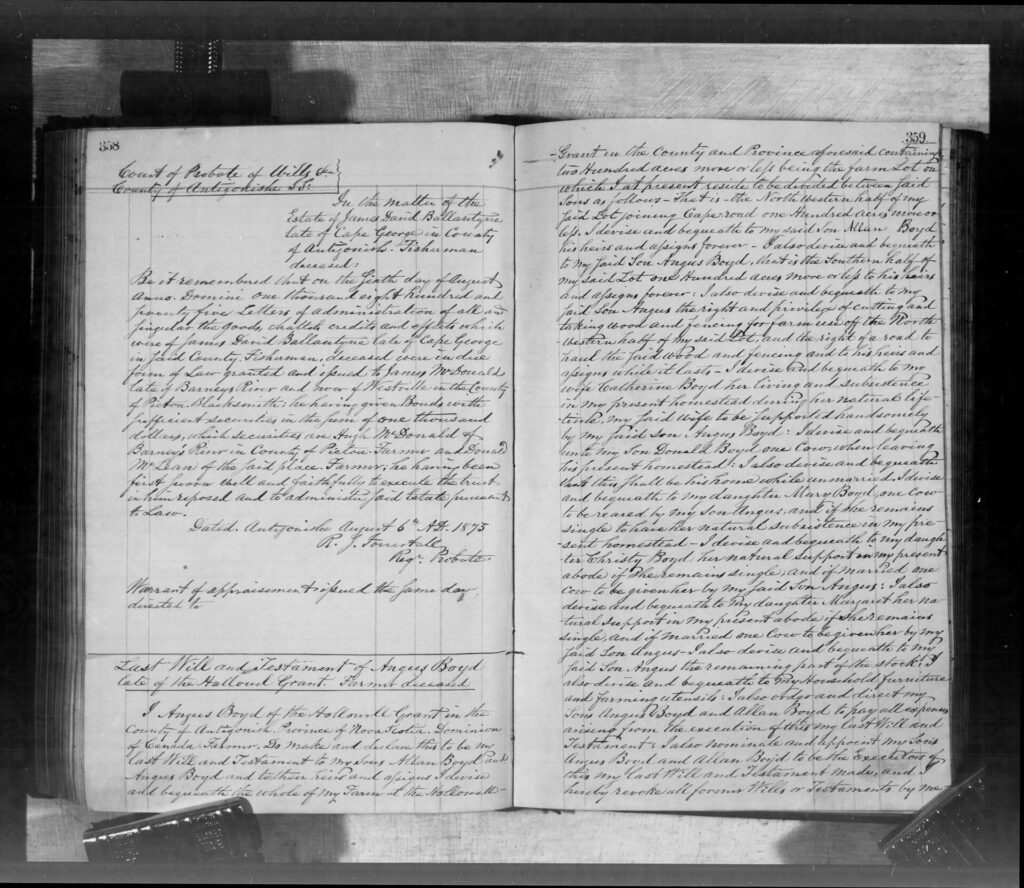 358
Court of Probate of Wills &c
County of Antigonishe SS:
In the matter of the
Estate of James David Ballantyne
late of Cape George in County
of Antigonish Fisherman
deceased:
Be it remembered that on the Sixth day of August
Anno. Domine one thousand eight hundred and
seventy five Letters of administration of all and
singular the Goods, chattels credits and effects which
were of James David Ballantyne late of Cape George
in said County, Fisherman, deceased were in due
form of Law granted and issued to James McDonald
late of Barneys River and now of Westville in the County
of Pictou. Blacksmith; he having given Bonds with
sufficient securities in the sum of one thousand
dollars, which securities are Hugh McDonald of
Barney's River in County of Pictou Farmer and Donald
McLean of the said place Farmer; he having been
first sworn well and faithfully to execute the trust
in him reposed and to administer said estate pursuant
to Law.
Dated Antigonishe August 6th A.D. 1875
R. J. Forrestall
Regr. Probate
Warrant of appraisement issued the same day
directed to
Last Will and Testament of Angus Boyd
late of the Halloud Grant. Farmer deceased
I Angus Boyd of the Hollowell Grant in the
County of Antigonish, Province of Nova Scotia, Dominion
of Canada Farmer. Do make and declare this to be my
last Will and Testament to my Sons Allan Boyd and
Angus Boyd and to their heirs and assigns I devise
and bequeath the whole of my Farm at the Hollowell-
359
-Grant in the County and Province aforesaid containing
two Hundred acres more or less being the farm Lot on
which I at present reside to be divided between said
Sons as follows - That is - the North Western half of my
said Lot joining Cape road one Hundred acres more or
less, I devise and bequeath to my said Son Allan Boyd
his heirs and assigns forever - I also devise and bequeath
to my said Son Angus Boyd, that is the Southern half of
my said Lot one Hundred acres more or less to his heirs
and assigns forever: I also devise and bequeath to my
said Son Angus the right and privilege of cutting and
taking wood and fencing for farm use off the North
Western half of my said Lot, and the right of a road to
haul the said wood and fencing and to his heirs and
assigns while it lasts - I devise and bequeath to my
wife Catherine Boyd her living and subsistence
in my present homestead during her natural life-
time, my said wife to be supported handsomely
by my said Son, Angus Boyd: I devise and bequeath
unto my Son Donald Boyd one Cow, when leaving
his present homestead: I also devise and bequeath
that this shall be his home while unmarried. I devise
and bequeath to my daughter Mary Boyd, one Cow
to be reared by my Son Angus, and if she remains
single to have her natural subsistence in my pre-
sent homestead - I devise and bequeath to my daugh-
ter Christy Boyd her natural support in my present
abode if she remains single, and if married one
Cow to be given her by my said Son Angus: I also
devise and bequeath to my daughter Margaret her na-
tural support in my present abode if she remains
single, and if married one Cow to be given her by my
said Son Angus - I also devise and bequeath to my
said Son Angus the remaining part of the stock: I
also devise and bequeath to my Household furniture
and farming utensils: I also order and direct my
Sons Angus Boyd and Allan Boyd to pay all expenses
arising from the execution of this my last Will and
Testament: I also nominate and appoint my Sons
Angus Boyd and Allan Boyd to be the Executors of
this my last Will and Testament made, and I
hereby revoke all former Wills or Testaments by me